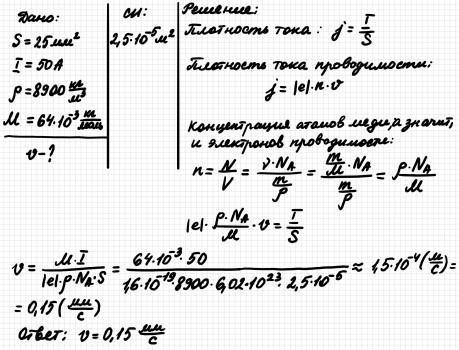 Дано:
S = 25 мм²
I = 50 А
ρ = 8900 кг/м³
M = 64·10⁻³ кг/моль
υ - ?
СИ:
2,5·10⁻⁵ м²
Решение:
Плотность тока: j = I/S
Плотность тока проводимости:
j = |e|·n·υ
Концентрация атомов меди, а значит,
и электронов проводимости:
n = N/V = (ν·N_A)/(m/ρ) = (m/M·N_A)/(m/ρ) = (ρ·N_A)/M
|e|·(ρ·N_A)/M·υ = I/S
υ = (M·I)/(|e|·ρ·N_A·S) = (64·10⁻³·50)/(1,6·10⁻¹⁹·8900·6,02·10²³·2,5·10⁻⁵) ≈ 1,5·10⁻⁴ (м/с) =
= 0,15 (мм/с)
Ответ: υ = 0,15 мм/с